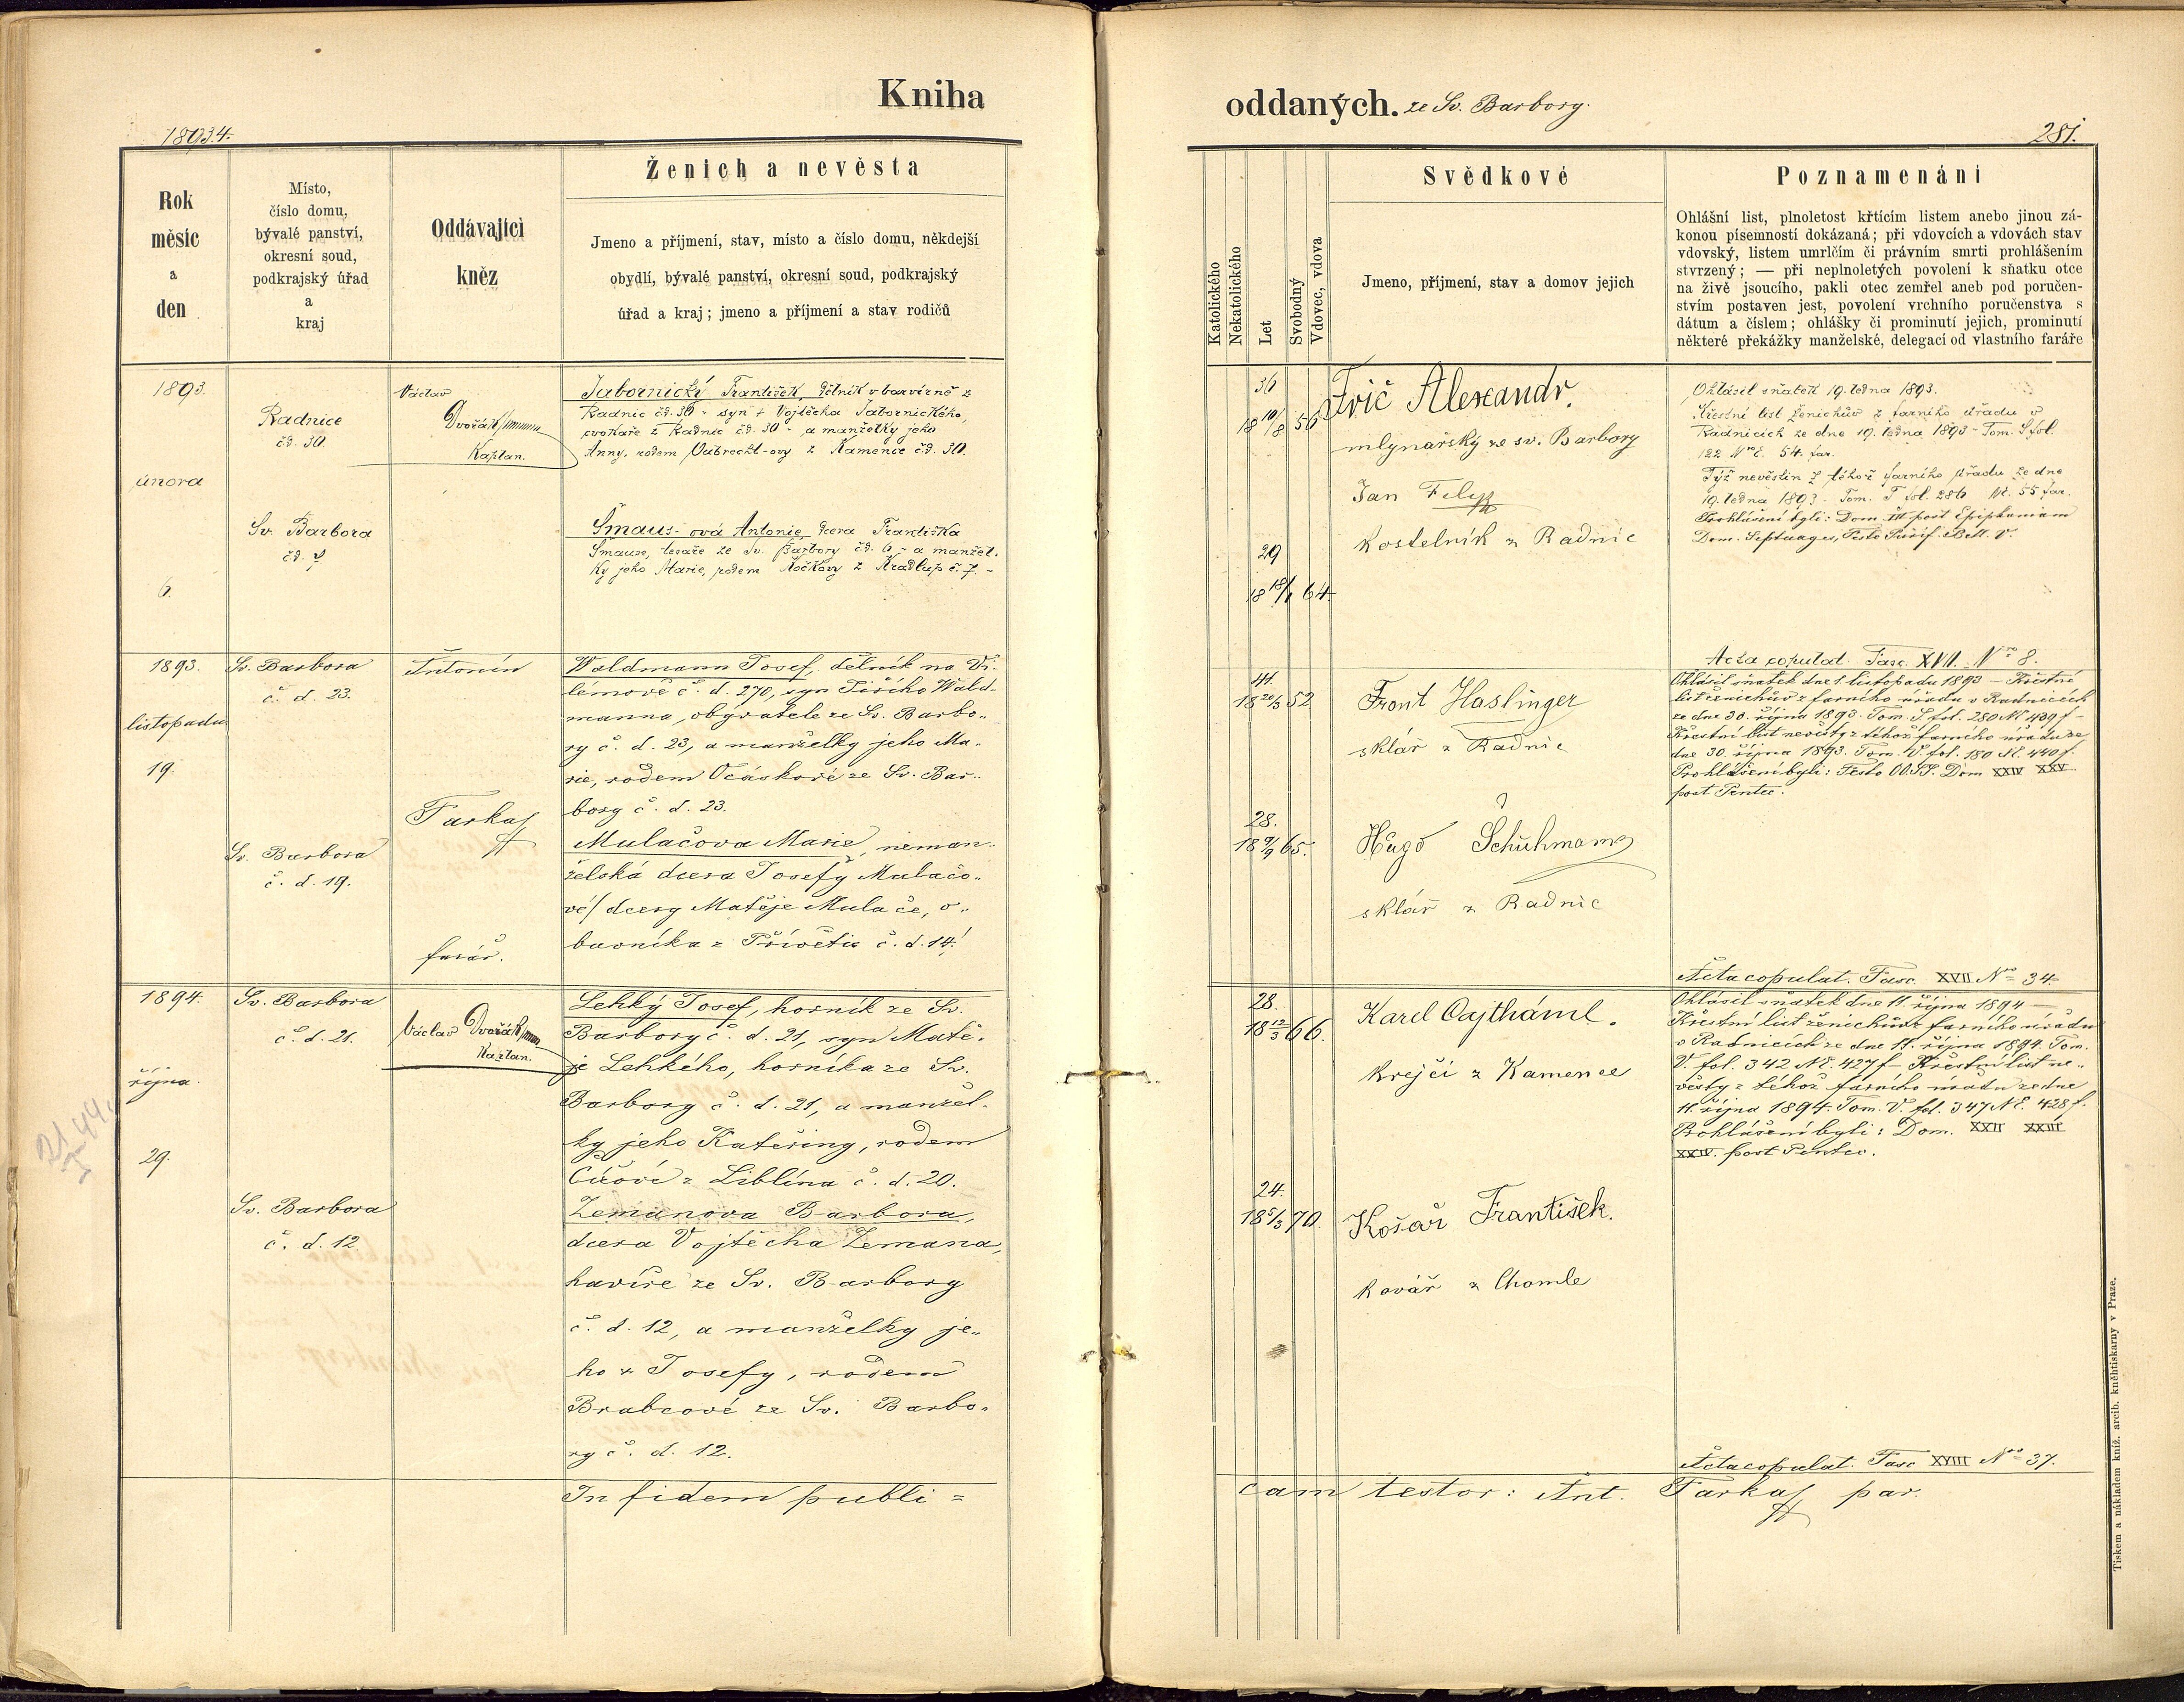 Kniha
1893.4.
Rok
měsíc
a
den
Místo,
číslo domu,
bývalé panství,
okresní soud,
podkrajský úřad
a
kraj
Oddávající
kněz
Ženich a nevěsta
Jmeno a příjmení, stav, místo a číslo domu, někdejší
obydlí, bývalé panství, okresní soud, podkrajský
úřad a kraj; jmeno a příjmení a stav rodičů
1893.
února
6.
Radnice
čd. 30.
Sv. Barbora
čd.
Václav
Dvořák
Kaplan.
Jabornický František, dělník v barvírně z
Radnic čd. 30 - syn + Vojtěcha Jabornického,
cvokaře z Radnic čd. 30 - a manželky jeho
Anny, rodem z Kamence čd. 30.
Šmaus-ová Antonie, dcera Františka
Šmause, tesaře ze Sv. Barbory čd. 6, - a manžel.
ky jeho Marie, rodem Kočkovy z Hradlup č. 7. -
1893.
listopadu
19.
Sv. Barbora
č. d. 23.
Sv. Barbora
č. d. 19.
Antonín
Farkaš
farář.
Waldmann Josef, dělník na Vi-
lémově č. d. 270, syn Jiřího Wald-
manna, obývatele ze Sv. Barbo-
ry č. d. 23, a manželky jeho Ma-
rie, rodem Ocáskové ze Sv. Bar-
bory č. d. 23.
Mulačova Marie, neman-
želská dcera Josefy Mulačo-
vé/ dcery Matěje Mulače, o-
buvníka z Přívětic č. d. 14./
1894.
října.
29.
Sv. Barbora
č. d. 21.
Sv. Barbora
č. d. 12
Václav Dvořák
Kaplan.
Lehký Josef, horník ze Sv.
Barbory č. d. 21, syn Matě-
je Lehkého, horníka ze Sv.
Barbory č. d. 21, a manžel-
ky jeho Kateřiny, rodem
z Liblína č. d. 20.
Zemanova Barbora,
dcera Vojtěcha Zemana,
havíře ze Sv. Barbory
č. d. 12, a manželky je-
ho + Josefy, rodem
Brabcové ze Sv. Barbo-
ry č. d. 12.
In fidem publi =
oddaných. ze Sv. Barbory.
281.
Katolického
Nekatolického
Let
Svobodný
Vdovec, vdova
Svědkové
Jmeno, příjmení, stav a domov jejich
Poznamenáni
Ohlášní list, plnoletost křtícím listem anebo jinou zá-
konou písemností dokázaná; při vdovcích a vdovách stav
vdovský, listem umrlčím či právním smrti prohlášením
stvrzený; — při neplnoletých povolení k sňatku otce
na živě jsoucího, pakli otec zemřel aneb pod poručen-
stvím postaven jest, povolení vrchního poručenstva s
dátum a číslem; ohlášky či prominutí jejich, prominutí
některé překážky manželské, delegací od vlastního faráře
36
18 10/8 56
29
18 18/1 64.
Frič Alexandr.
mlynařský ze sv. Barbory
Jan Filip
kostelník z Radnic
Ohlásil sňatek 19. ledna 1893.
Křestní list ženichův z farního úřadu v
Radnicích ze dne 19. ledna 1893 - Tom. S fol.
122 Nrč. 54. far.
Týž nevěstin z téhož farního úřadu ze dne
19. ledna 1893. Tom. T fol. 286 Nč. 55 far.
Prohlášení byli: Dom. III post Epiphaniam
Dom. Septuages, Festo Purif. B. V.
Acta copulat. Fasc. XVII. Nro 8.
41.
18 20/3 52
28.
18 9/9 65.
Front Haslinger
sklář z Radnic
Hugo Schuhmann
sklář z Radnic
Ohlásil sňatek dne 1. listopadu 1893 — Křestní
list ženichův z farního úřadu v Radnicích
ze dne 30. října 1893. Tom. S fol. 280 Nč 439 f -
Křestní list nevěsty z téhož farního úřadu ze
dne 30. října 1893. Tom. V. fol. 180 Nč. 440 f.
Prohlášení byli: Festo OO.SS. Dom XXIV XXV
post Pentec.
Acta copulat. Fasc. XVII Nro 34.
28.
18 12/3 66.
24.
18 5/3 70.
Karel Cajthaml.
krejčí z Kamence
Kosař František.
kovář z Chomle
Ohlásil sňatek dne 11. října 1894 —
Křestní list ženichův z farního úřadu
v Radnicích ze dne 11. října 1894. Tom.
V. fol. 342 Nč. 427 f - Křestní list ne-
věsty z téhož farního úřadu ze dne
11. října 1894. Tom. V. fol. 347 Nč. 428 f.
Prohlášení byli: Dom. XXII XXIII
XXIV. post Pentec.
Acta copulat. Fasc XVIII Nro 37.
cam testor: Ant. Farkaš par.
Tiskem a nákladem kníž. arcib. kněhtiskarny v Praze.